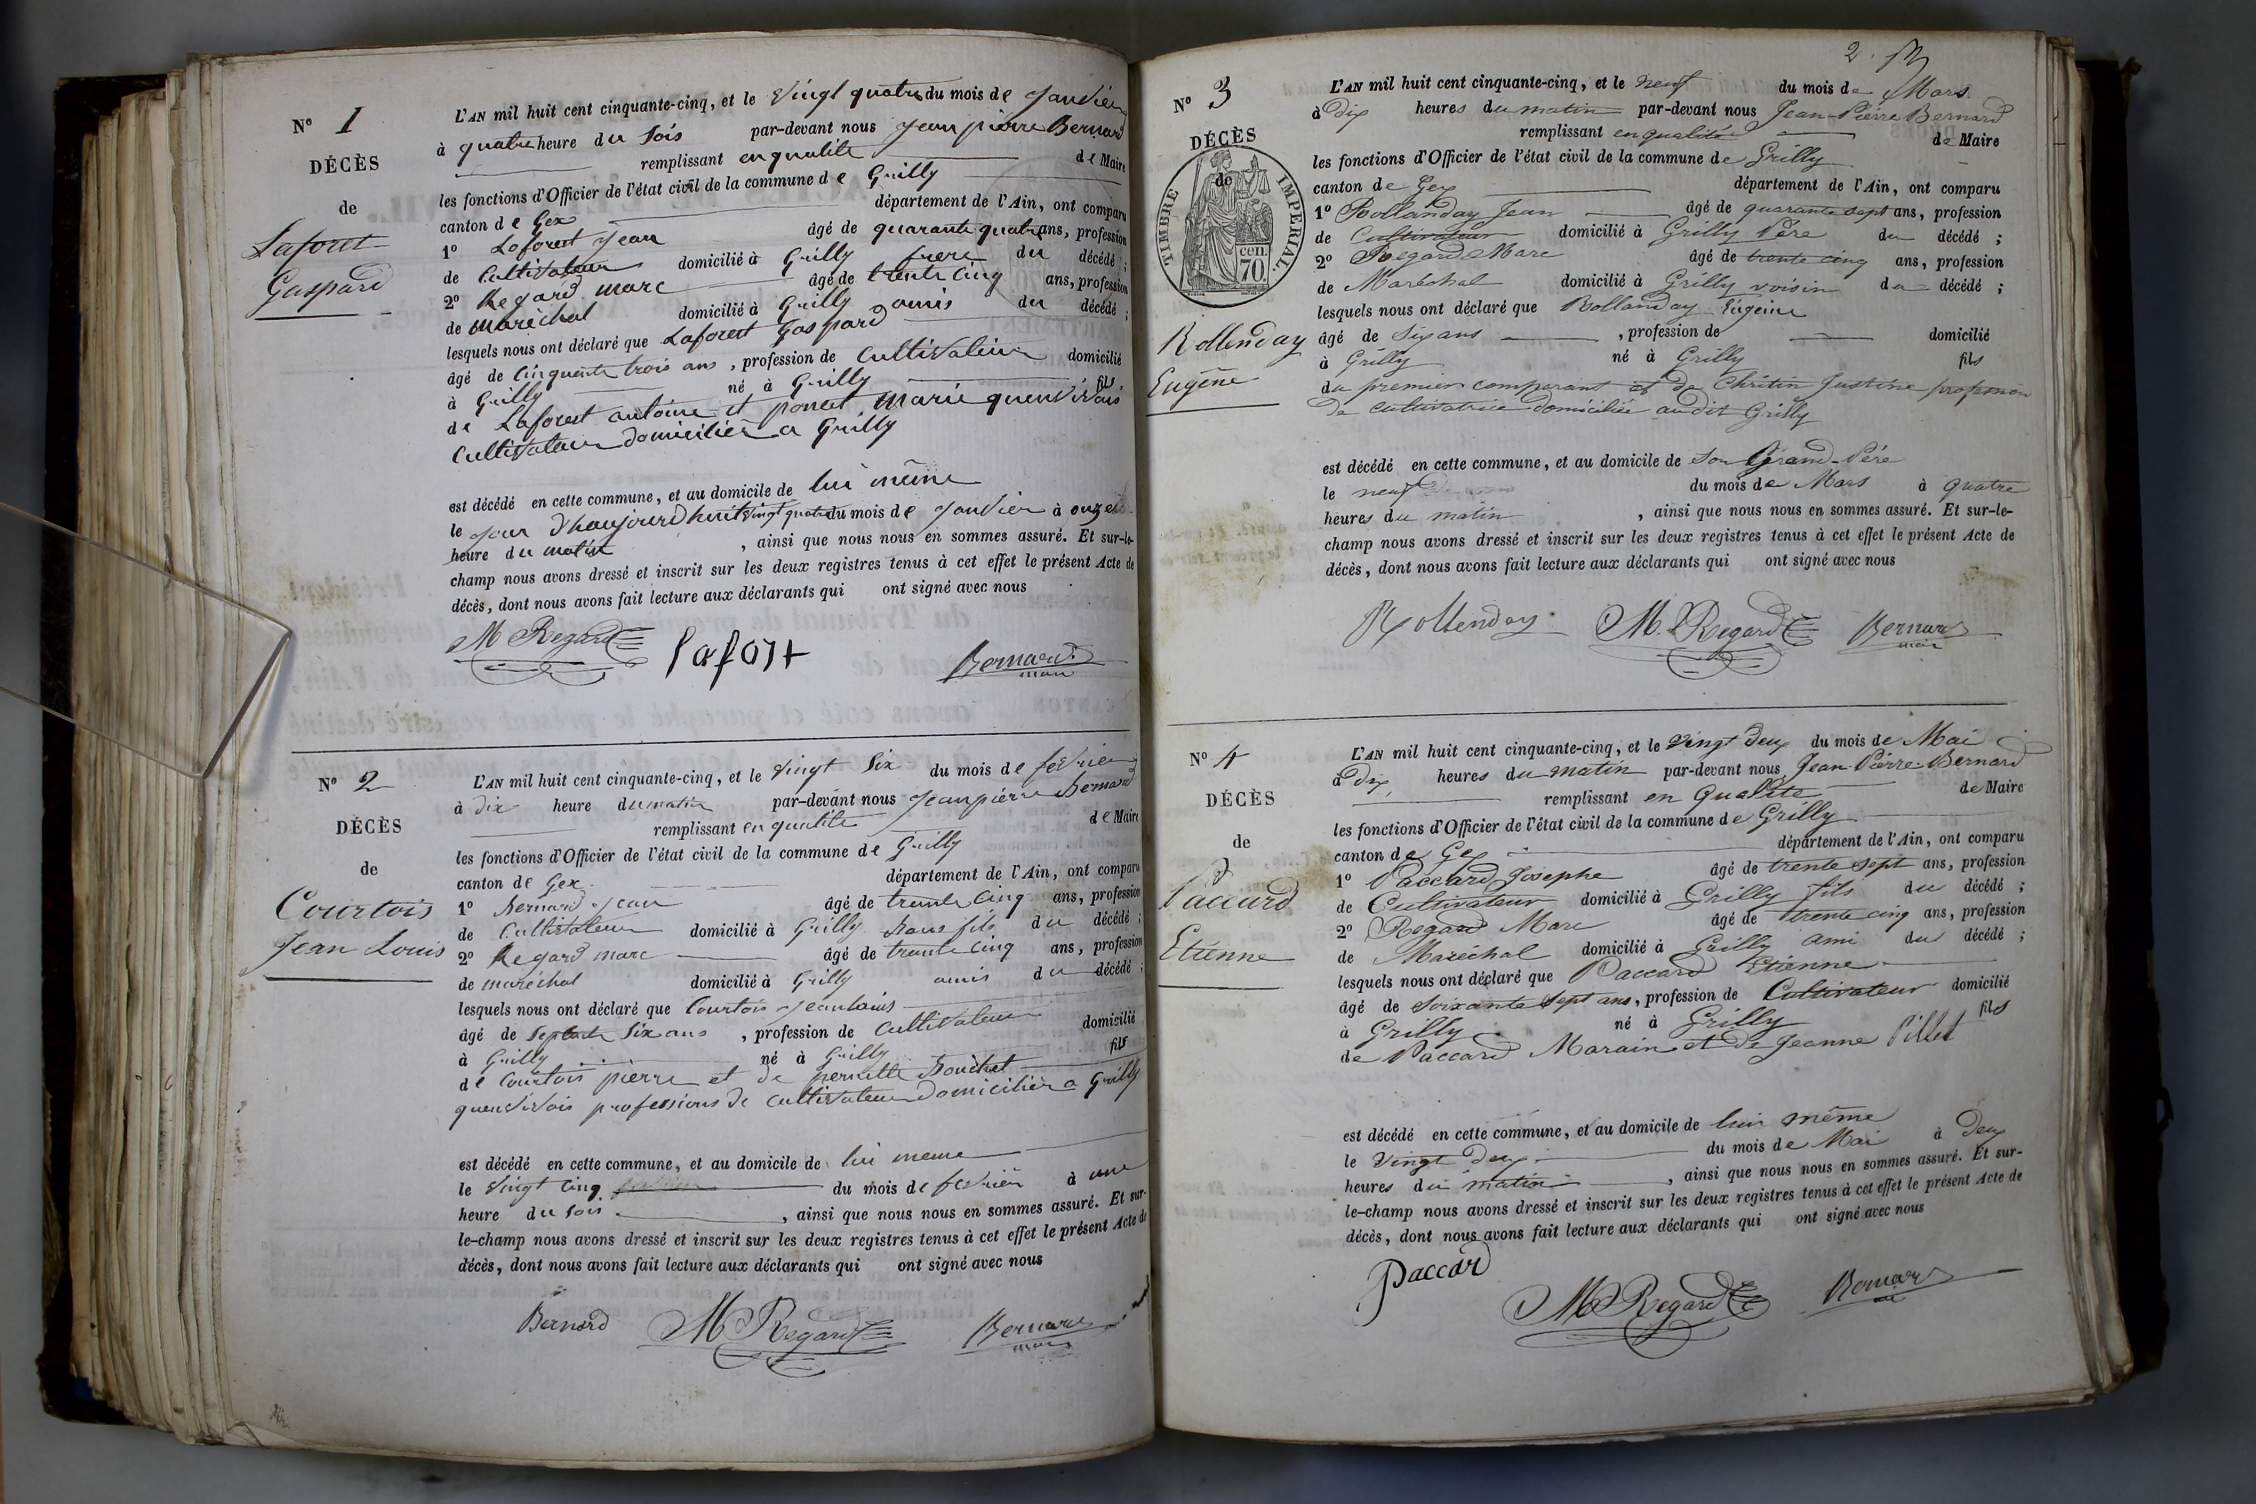 N° 1
DÉCÈS
de
Laforet
Gaspard
L'AN mil huit cent cinquante-cinq, et le Vingt quatre du mois de Janvier
à quatre heure du Soir par-devant nous Jean pierre Bernard
remplissant en qualité de Maire
les fonctions d'Officier de l'état civil de la commune de Grilly
canton de Gex département de l'Ain, ont comparu
1° Laforest Jean âgé de quarante quatre ans, profession
de Cultivateur domicilié à Grilly frere du décédé ;
2° Regard marc âgé de trente cinq ans, profession
de maréchal domicilié à Grilly amis du décédé ;
lesquels nous ont déclaré que Laforest Gaspard
âgé de Cinquente trois ans, profession de Cultivateur domicilié
à Grilly né à Grilly fils
de Laforest antoine et poncet Marie quenvivois
Cultivateur domicilier a Grilly
est décédé en cette commune, et au domicile de lui même
le jour d'haujourdhuit vingt quatre du mois de Janvier à onze
heure du matin, ainsi que nous nous en sommes assuré. Et sur-le-
champ nous avons dressé et inscrit sur les deux registres tenus à cet effet le présent Acte de
décès, dont nous avons fait lecture aux déclarants qui ont signé avec nous
M Regard Lafort Bernard
maire
N° 2
DÉCÈS
de
Courtois
Jean Louis
L'AN mil huit cent cinquante-cinq, et le Vingt Six du mois de fevrier
à dix heure du matin par-devant nous Jean pièrre Bernard
remplissant en qualité de Maire
les fonctions d'Officier de l'état civil de la commune de Grilly
canton de Gex département de l'Ain, ont comparu
1° Bernard Jean âgé de trente Cinq ans, profession
de Cultivateur domicilié à Grilly Baus fils du décédé ;
2° Regard marc âgé de trente Cinq ans, profession
de maréchal domicilié à Grilly amis du décédé ;
lesquels nous ont déclaré que Courtois Jean Louis
âgé de Six ans, profession de Cultivateur domicilié
à Grilly né à Grilly fils
de Courtois pierre et de pernette Bouchet
quenvivois professions de Cultivateur domicilier a Grilly
est décédé en cette commune, et au domicile de lui meme
le Vingt Cinq du mois de fevrier à une
heure du Soir, ainsi que nous nous en sommes assuré. Et sur-
le-champ nous avons dressé et inscrit sur les deux registres tenus à cet effet le présent Acte de
décès, dont nous avons fait lecture aux déclarants qui ont signé avec nous
Bernard M Regard Bernard
maire
2.
N° 3
DÉCÈS
de
TIMBRE IMPERIAL
cen.
70
Rollenday
Eugène
L'AN mil huit cent cinquante-cinq, et le neuf du mois de Mars
à Dix heures du matin par-devant nous Jean-Pierre Bernard
remplissant en qualité de Maire
les fonctions d'Officier de l'état civil de la commune de Grilly
canton de Gex département de l'Ain, ont comparu
1° Rollanday Jean âgé de quarante sept ans, profession
de Cultivateur domicilié à Grilly Père du décédé ;
2° Regard Marc âgé de trente cinq ans, profession
de Maréchal domicilié à Grilly voisin du décédé ;
lesquels nous ont déclaré que Rollanday Eugeine
âgé de Six ans, profession de domicilié
à Grilly né à Grilly fils
du premier comparant et de Chritin Justine profession
de cultivatrice domiciliée audit Grilly
est décédé en cette commune, et au domicile de Son Grand-Père
le neuf du mois de Mars à quatre
heures du matin, ainsi que nous nous en sommes assuré. Et sur-le-
champ nous avons dressé et inscrit sur les deux registres tenus à cet effet le présent Acte de
décès, dont nous avons fait lecture aux déclarants qui ont signé avec nous
Rollenday M. Regard Bernard
maire
N° 4
DÉCÈS
de
Paccard
Etienne
L'AN mil huit cent cinquante-cinq, et le Vingt Deux du mois de Mai
à Dix heures du matin par-devant nous Jean-Pierre-Bernard
remplissant en Qualité de Maire
les fonctions d'Officier de l'état civil de la commune de Grilly
canton de Gex département de l'Ain, ont comparu
1° Paccard Josephe âgé de trente sept ans, profession
de Cultivateur domicilié à Grilly fils du décédé ;
2° Regard Marc âgé de trente cinq ans, profession
de Maréchal domicilié à Grilly ami du décédé ;
lesquels nous ont déclaré que Paccard Etienne
âgé de soixante sept ans, profession de Cultivateur domicilié
à Grilly né à Grilly fils
de Paccard Marain et de Jeanne Pillet
est décédé en cette commune, et au domicile de luin même
le vingt Deux du mois de Mai à Deux
heures du matin, ainsi que nous nous en sommes assuré. Et sur-
le-champ nous avons dressé et inscrit sur les deux registres tenus à cet effet le présent Acte de
décès, dont nous avons fait lecture aux déclarants qui ont signé avec nous
Paccard M Regard Bernard